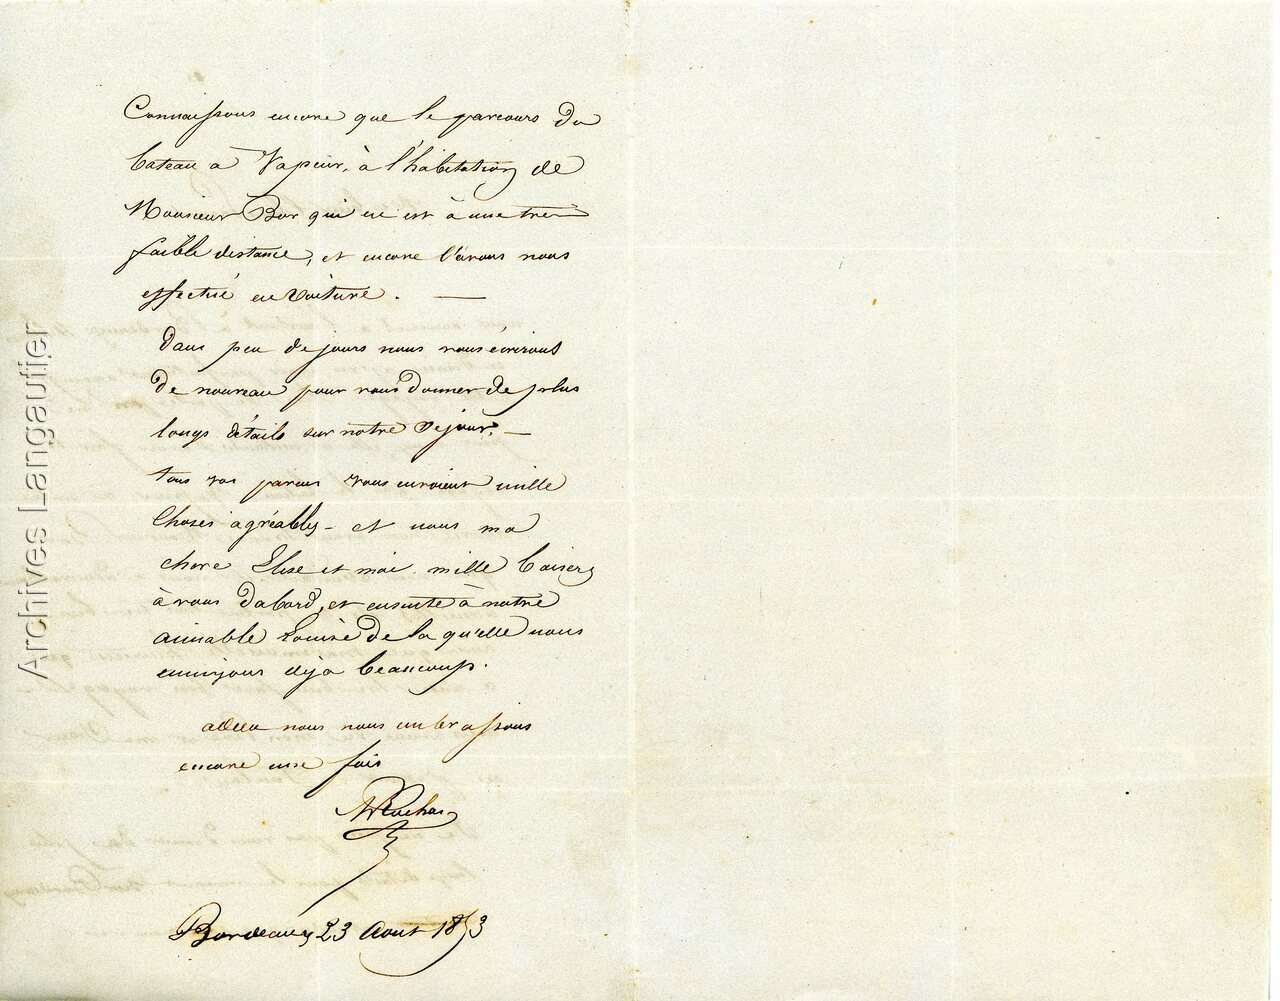 Connaissons encore que le parcours du
bateau à Vapeur, à l'habitation de
Monsieur Bor qui en est à une tres
faible distance, et encore l'avons nous
effectué en voiture. —
Dans peu de jours nous vous écrirons
de nouveau pour vous donner de plus
longs détails sur notre séjour. —
tous vos parens vous envoient mille
choses agréables - et nous ma
chere Elise et moi mille baisers
à vous dabord, et ensuite à notre
aimable Louise de la qu'elle nous
ennuyons deja beaucoup.
adieu nous vous embrassons
encore une fois
Bordeaux 23 Aout 1853
Archives Langautier